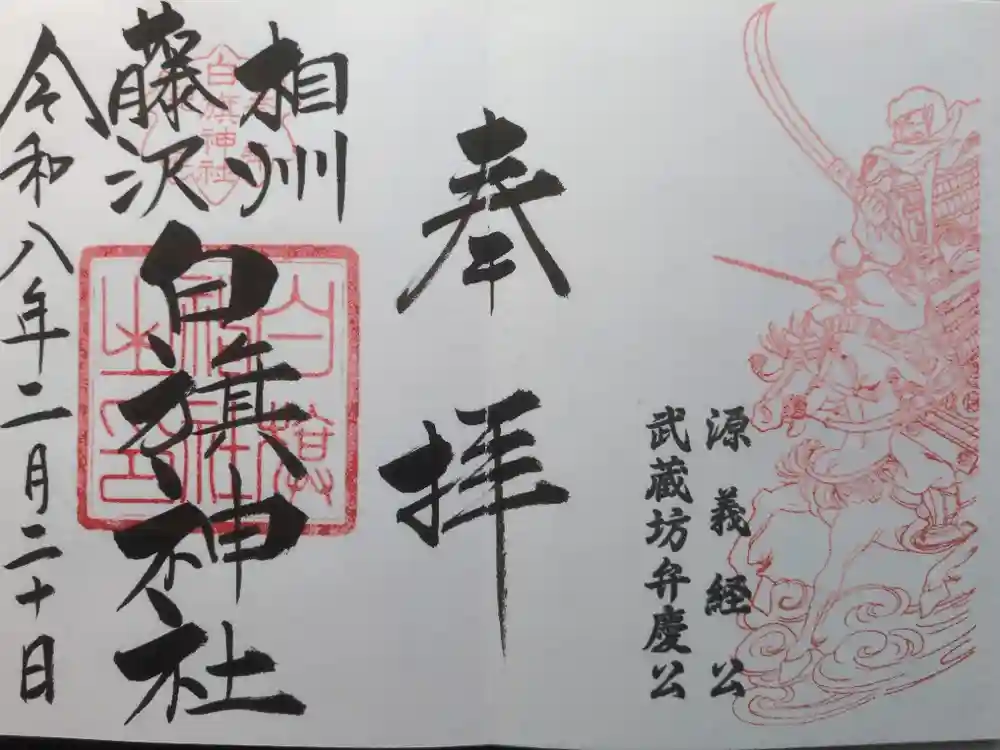 源義経公
武蔵坊弁慶公
奉拝
相州
藤沢
白旗神社
白旗神社
白旗
神社
之印
令和八年二月二十日